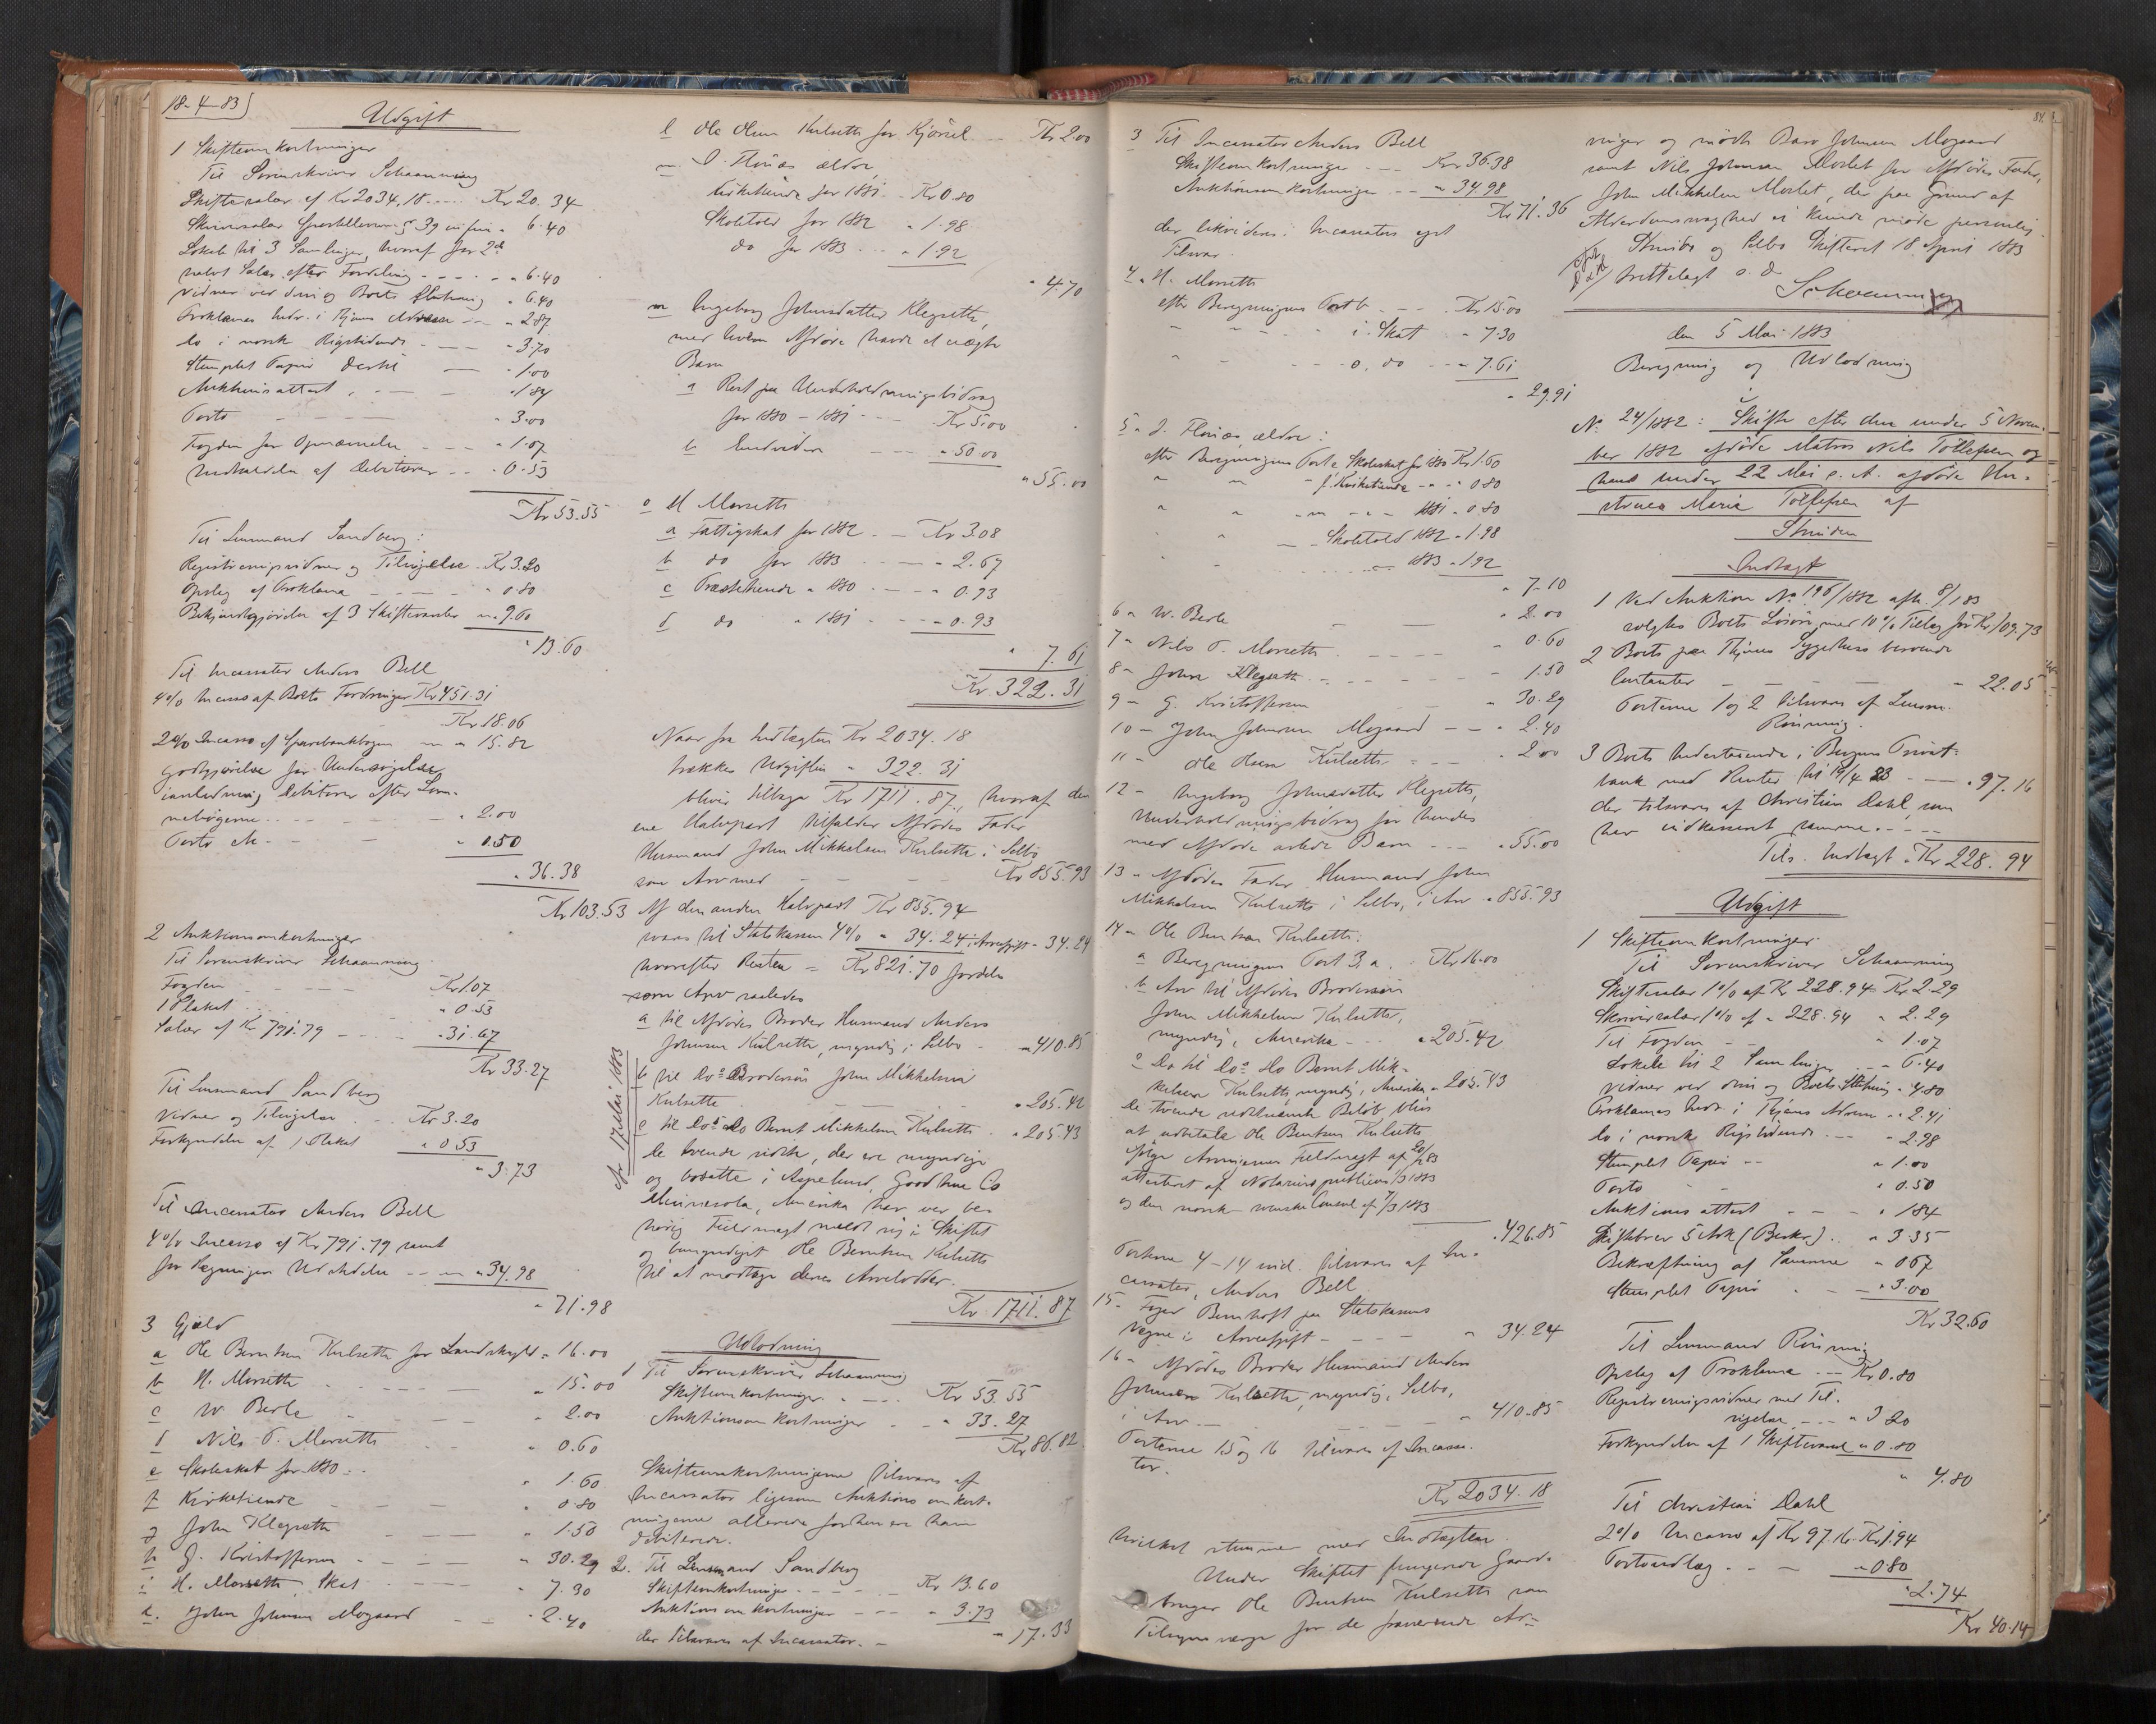 18-4-83
Udgift
1 Skifteomkostninger
Til Sorenskriver Schaanning
Skiftesalær af Kr 2034.18 Kr 20.34
Skriversalær 6.40
Lokale til 3 Samlinger, hvoraf for 2de
halvt Salær efter Fordeling 6.40
Vidner ved disse og Boets Slutning 6.40
Proklamas Indr. i Thjems Adresse 2.87
Do i norsk Rigstidende 3.70
Stemplet Papir dertil 1.00
Auktionsattest 1.84
Porto 3.00
Fogden for Opnævnelse 1.07
Indkaldelse af Debitorer 0.53
Kr 53.55
Til Lensmand Sandberg:
Registreringsvidner og Tilsigelse Kr 3.20
Opslag af Proklama 0.80
Bekjendtgjørelse af 3 Skiftesamler 9.60
13.60
Til Incassator Anders Bell
4% Incasso af Boets Fordringer Kr 451.31
Kr 18.06
2% Incasso af Sparebankbogen 15.82
Godtgjørelse for Undersøgelse
i anledning Debitorer efter Lom-
mebøgerne 2.00
Porto 0.50
36.38
Kr 103.53
2 Auktionsomkostninger
Til Sorenskriver Schaanning
Fogden Kr 1.07
1 Plakat 0.53
Salær af Kr 791.79 31.67
Kr 33.27
Til Lensmand Sandberg
Vidner og Tilsigelse Kr 3.20
Forkyndelse af 1 Plakat 0.53
3.73
Til Incassator Anders Bell
4% Incasso af Kr 791.79 samt
for Udstedelse 34.98
71.98
3 Gjæld
a Ole Berntsen Kulseth for Landskyld 16.00
b H. Morseth 15.00
c W. Berle 2.00
d Nils T. Morseth 0.60
e Skoleskat for 1880 1.60
f Kirketiende 0.80
g John Klegseth 1.50
h G. Kristoffersen 30.29
i H. Morseth Skat 7.30
k John Johnsen Mogaard 2.40
l Ole Olsen Kulseth for Kjørsel Kr 2.00
m J. Flønæs ældre,
Kirketiende for 1881 Kr 0.80
Skoletold for 1882 1.98
do for 1883 1.92
4.70
n Ingeborg Johnsdatter Klegseth,
med hvem Afdøde havde et uægte
Barn
a Rest paa Underholdningsbidrag
for 1880-1881 Kr 5.00
b Endvidere 50.00
55.00
o H Morseth
a Fattigskat for 1882 Kr 3.08
b do for 1883 2.67
c Præstetiende 1880 0.93
d do 1881 0.93
7.61
Kr. 322.31
Naar fra Indtægten Kr 2034.18
trækkes Udgiften 322.31
bliver tilbage Kr 1711.87, hvoraf den
ene Halvpart tilfalder Afdødes Fader
Husmand John Mikkelsen Kulseth i Selbo
som Arv med Kr 855.93
Af den anden Halvpart Kr 855.94
svares til Statskassen 4% 34.24 i Arveafgift 34.24
hvorefter Resten = Kr 821.70 fordeles
som Arv saaledes
a til Afdødes Broder Husmand Anders
Johnsen Kulseth, myndig i Selbo 410.85
b til Do Brodersøn John Mikkelsen
Kulseth 205.42
c til Do Do Bernt Mikkelsen Kulseth 205.43
de tvende sidste, der ere myndige
og bosatte i Aspelund, Goodhue Co
Minnesota, Amerika har ved be-
hørig Fuldmagt meldt sig i Skiftet
og bemyndiget Ole Berntsen Kulseth
til at modtage deres Arvelodder.
Kr 1711.87
Udlodning
1 Til Sorenskriver Schaanning
Skifteomkostninger Kr 53.55
Auktionsomkostninger 33.27
Kr 86.82
Skifteomkostningerne tilsvares af
Incassator ligesom Auktionsomkost-
ningerne allerede forhen ere ham
debiterede.
2. Til Lensmand Sandberg
Skifteomkostninger Kr 13.60
Auktionsomkostninger 3.73
17.33
der tilsvares af Incassator.
3 Til Incassator Anders Bell
Skifteomkostninger Kr 36.38
Auktionsomkostninger 34.98
Kr 71.36
der likvideres i Incassators eget
Tilsvar.
4 H. Morseth
efter Beregningens Post b Kr 15.00
i. Skat 7.30
o, do 7.61
29.91
5 J. Flønæs, ældre:
efter Beregningens Post e Skoleskat for 1880 Kr 1.60
f Kirketiende 0.80
m 1881 0.80
Skoletold 1882 1.98
1883 1.92
7.10
6 W. Berle 2.00
7 Nils T. Morseth 0.60
8 John Klegseth 1.50
9 G. Kristoffersen 30.29
10 John Johnsen Mogaard 2.40
11 Ole Olsen Kulseth 2.00
12 Ingeborg Johnsdatter Klegseth,
Underholdningsbidrag for hendes
med Afdøde avlede Barn 55.00
13 Afdødes Fader Husmand John
Mikkelsen Kulseth i Selbo, i Arv 855.93
14 Ole Berntsen Kulseth:
a Beregningens Post 3, a. Kr 16.00
b Arv til Afdødes Brodersøn
John Mikkelsen Kulseth,
myndig, Amerika 205.42
c Do til Do Do Bernt Mik-
kelsen Kulseth, myndig, Amerika 205.43
De tvende sidstnævnte Beløb blive
at udbetale Ole Berntsen Kulseth
ifølge Arvingernes Fuldmagt af
attesteret af Notarius publicus 1883
og den norsk-svenske Consul af 7/3 1883
426.85
Posterne 4-14 incl. tilsvares af In-
cassator, Anders Bell
15 Foged Bernhoft paa Statskassens
Vegne i Arveafgift 34.24
16 Afdødes Broder Husmand Anders
Johnsen Kulseth, myndig, Selbo,
i Arv 410.85
Posterne 15 og 16 tilsvares af Incassa-
tor.
Kr 2034.18
hvilket stemmer med Indtægten.
Under Skiftet fungerede Gaard-
bruger Ole Berntsen Kulseth som
Tilsynsværge for de fraværende Ar-
84.
vinger og mødte Baro Johnsen Mogaard
samt Nils Johnsen Moslet for Afdødes Fader,
John Mikkelsen Moslet, der paa Grund af
Alderdomssvaghed ei kunde møde personlig.
Strinda og Selbo Skifteret 18 April 1883
Schaanning
den 5 Mai 1883
Beregning og Udlodning
i
No 24/1882: Skifte efter den under 5 Novem-
ber 1882 afdøde Matros Nils Tollefsen og
hans under 22 Mai s. A. afdøde Hu-
strues Marie Tollefsen af
Strinden
Indtægt
1 Ved Auktion No 196/1882 afh. 8/1 83
solgtes Boets Løsøre, med 10% Tillæg for Kr 109.73
2 Boets paa Thjems Sygehus beroende
Contanter 22.05
Posterne 1 og 2 tilsvares af Lensm.
Rønning.
3 Boets Indestaaende i Bergens Privat-
bank med Renter til 19/4 83 97.16
der tilsvares af Christian Dahl, som
har indkasseret samme.
Tils. Indtægt Kr 228.94
Udgift
1 Skifteomkostninger.
Til Sorenskriver Schaanning
Skiftesalær 1% af Kr 228.94 Kr 2.29
Skriversalær 1% af 228.94 2.29
Til Fogden 1.07
Lokale til 2 Samlinger 6.40
Vidner ved disse og Boets Slutning 4.80
Proklamas Indr. i Thjems Adresse 2.41
Do i norsk Rigstidende 2.98
Stemplet Papir 1.00
Porto 0.50
Auktionsattest 1.84
Skiftebrev 5 Ark (Beskr.) 3.35
Bekræftning af Samme 0.67
Stemplet Papir 3.00
Kr 32.60
Til Lensmand Rønning
Opslag af Proklama Kr 0.80
Registreringsvidner med Til-
sigelse 3.20
Forkyndelse af 1 Skiftesaml 0.80
4.80
Til Christian Dahl
2% Incasso af Kr 97.16 Kr 1.94
Portoudlæg 0.80
2.74
Kr 40.14